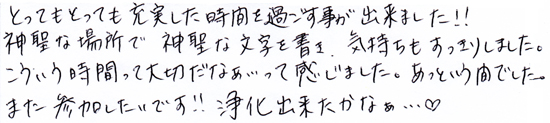 とってもとっても充実した時間を過ごす事が出来ました!!
神聖な場所で 神聖な文字を書き、気持ちもすっきりしました。
こういう時間って大切だなぁ…って感じました。あっという間でした。
また参加したいです!! 浄化出来たかなぁ…♡